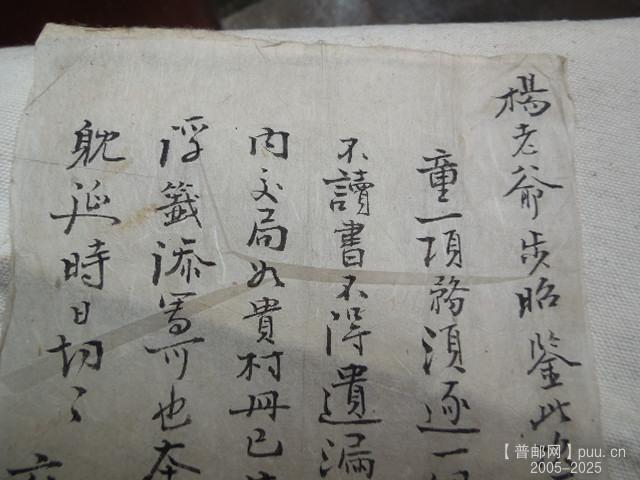 楊老爺步昭鑒此
童一項務須逐一
不讀書不得遺漏
內交局如貴村冊已
浮籤添寫可也本
躭延時日切々
【普邮网】puu.cn
2005-2025